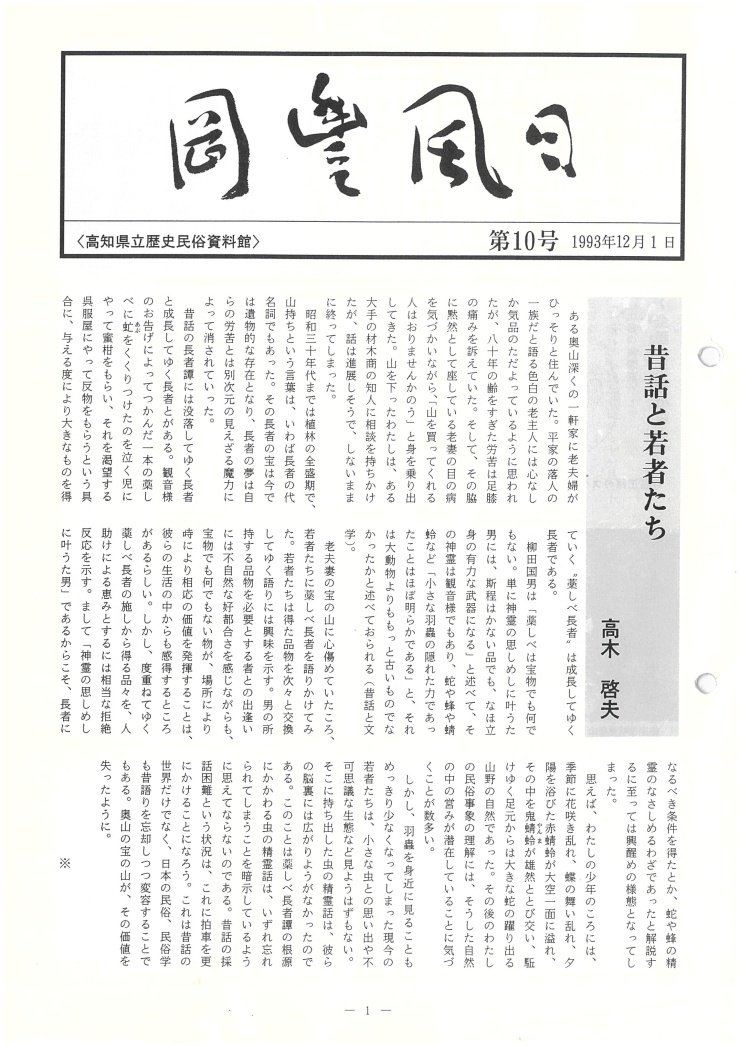 岡豊風日
〈高知県立歴史民俗資料館〉
第10号 1993年12月1日
昔話と若者たち
高木 啓夫
ある奥山深くの一軒家に老夫婦が
ひっそりと住んでいた。平家の落人の
一族だと語る色白の老主人には心なし
か気品のただよっているように思われ
たが、八十年の齢をすぎた労苦は足膝
の痛みを訴えていた。そして、その脇
に黙然として座している老妻の目の病
を気づかいながら、「山を買ってくれる
人はおりませんかのう」と身を乗り出
してきた。山を下ったわたしは、ある
大手の材木商の知人に相談を持ちかけ
たが、話は進展しそうで、しないまま
に終ってしまった。
昭和三十年代までは植林の全盛期で、
山持ちという言葉は、いわば長者の代
名詞でもあった。その長者の宝は今で
は遺物的な存在となり、長者の夢は自
らの労苦とは別次元の見えざる魔力に
よって消されていった。
昔話の長者譚には没落してゆく長者
と成長してゆく長者とがある。観音様
のお告げによってつかんだ一本の藁し
べに虻をくくりつけたのを泣く児に
あぶ
やって蜜柑をもらい、それを渇望する
呉服屋にやって反物をもらうという具
合に、与える度により大きなものを得
ていく〝藁しべ長者〟は成長してゆく
長者である。
柳田国男は「藁しべは宝物でも何で
もない。単に神霊の思しめしに叶うた
男には、斯程はかない品でも、なほ立
身の有力な武器になる」と述べて、そ
の神霊は観音様でもあり、蛇や蜂や蜻
蛉など「小さな羽蟲の隠れた力であっ
たことはほぼ明らかである」と、それ
は大動物よりももっと古いものでな
かったかと述べておられる（昔話と文
学）。
老夫妻の宝の山に心傷めていたころ、
若者たちに藁しべ長者を語りかけてみ
た。若者たちは得た品物を次々と交換
してゆく語りには興味を示す。男の所
持する品物を必要とする者との出逢い
には不自然な好都合さを感じながらも、
宝物でも何でもない物が、場所により
時により相応の価値を発揮することは、
彼らの生活の中からも感得するところ
があるらしい。しかし、度重ねてゆく
藁しべ長者の施しから得る品々を、人
助けによる恵みとするには相当な拒絶
反応を示す。まして「神霊の思しめし
に叶うた男」であるからこそ、長者に
なるべき条件を得たとか、蛇や蜂の精
霊のなさしめるわざであったと解説す
るに至っては興醒めの様態となってし
まった。
思えば、わたしの少年のころには、
季節に花咲き乱れ、蝶の舞い乱れ、夕
陽を浴びた赤蜻蛉が大空一面に溢れ、
その中を鬼蜻蛉が雄然ととび交い、駈
やんま
けゆく足元からは大きな蛇の躍り出る
山野の自然であった。その後のわたし
の民俗事象の理解には、そうした自然
の中の営みが潜在していることに気づ
くことが数多い。
しかし、羽蟲を身近に見ることも
めっきり少なくなってしまった現今の
若者たちは、小さな虫との思い出や不
可思議な生態など見ようはずもない。
そこに持ち出した虫の精霊話は、彼ら
の脳裏には広がりようがなかったので
ある。このことは藁しべ長者譚の根源
にかかわる虫の精霊話は、いずれ忘れ
られてしまうことを暗示しているよう
に思えてならないのである。昔話の採
話困難という状況は、これに拍車を更
にかけることになろう。これは昔話の
世界だけでなく、日本の民俗、民俗学
も昔語りを忘却しつつ変容することで
もある。奥山の宝の山が、その価値を
失ったように。
※
— 1 —